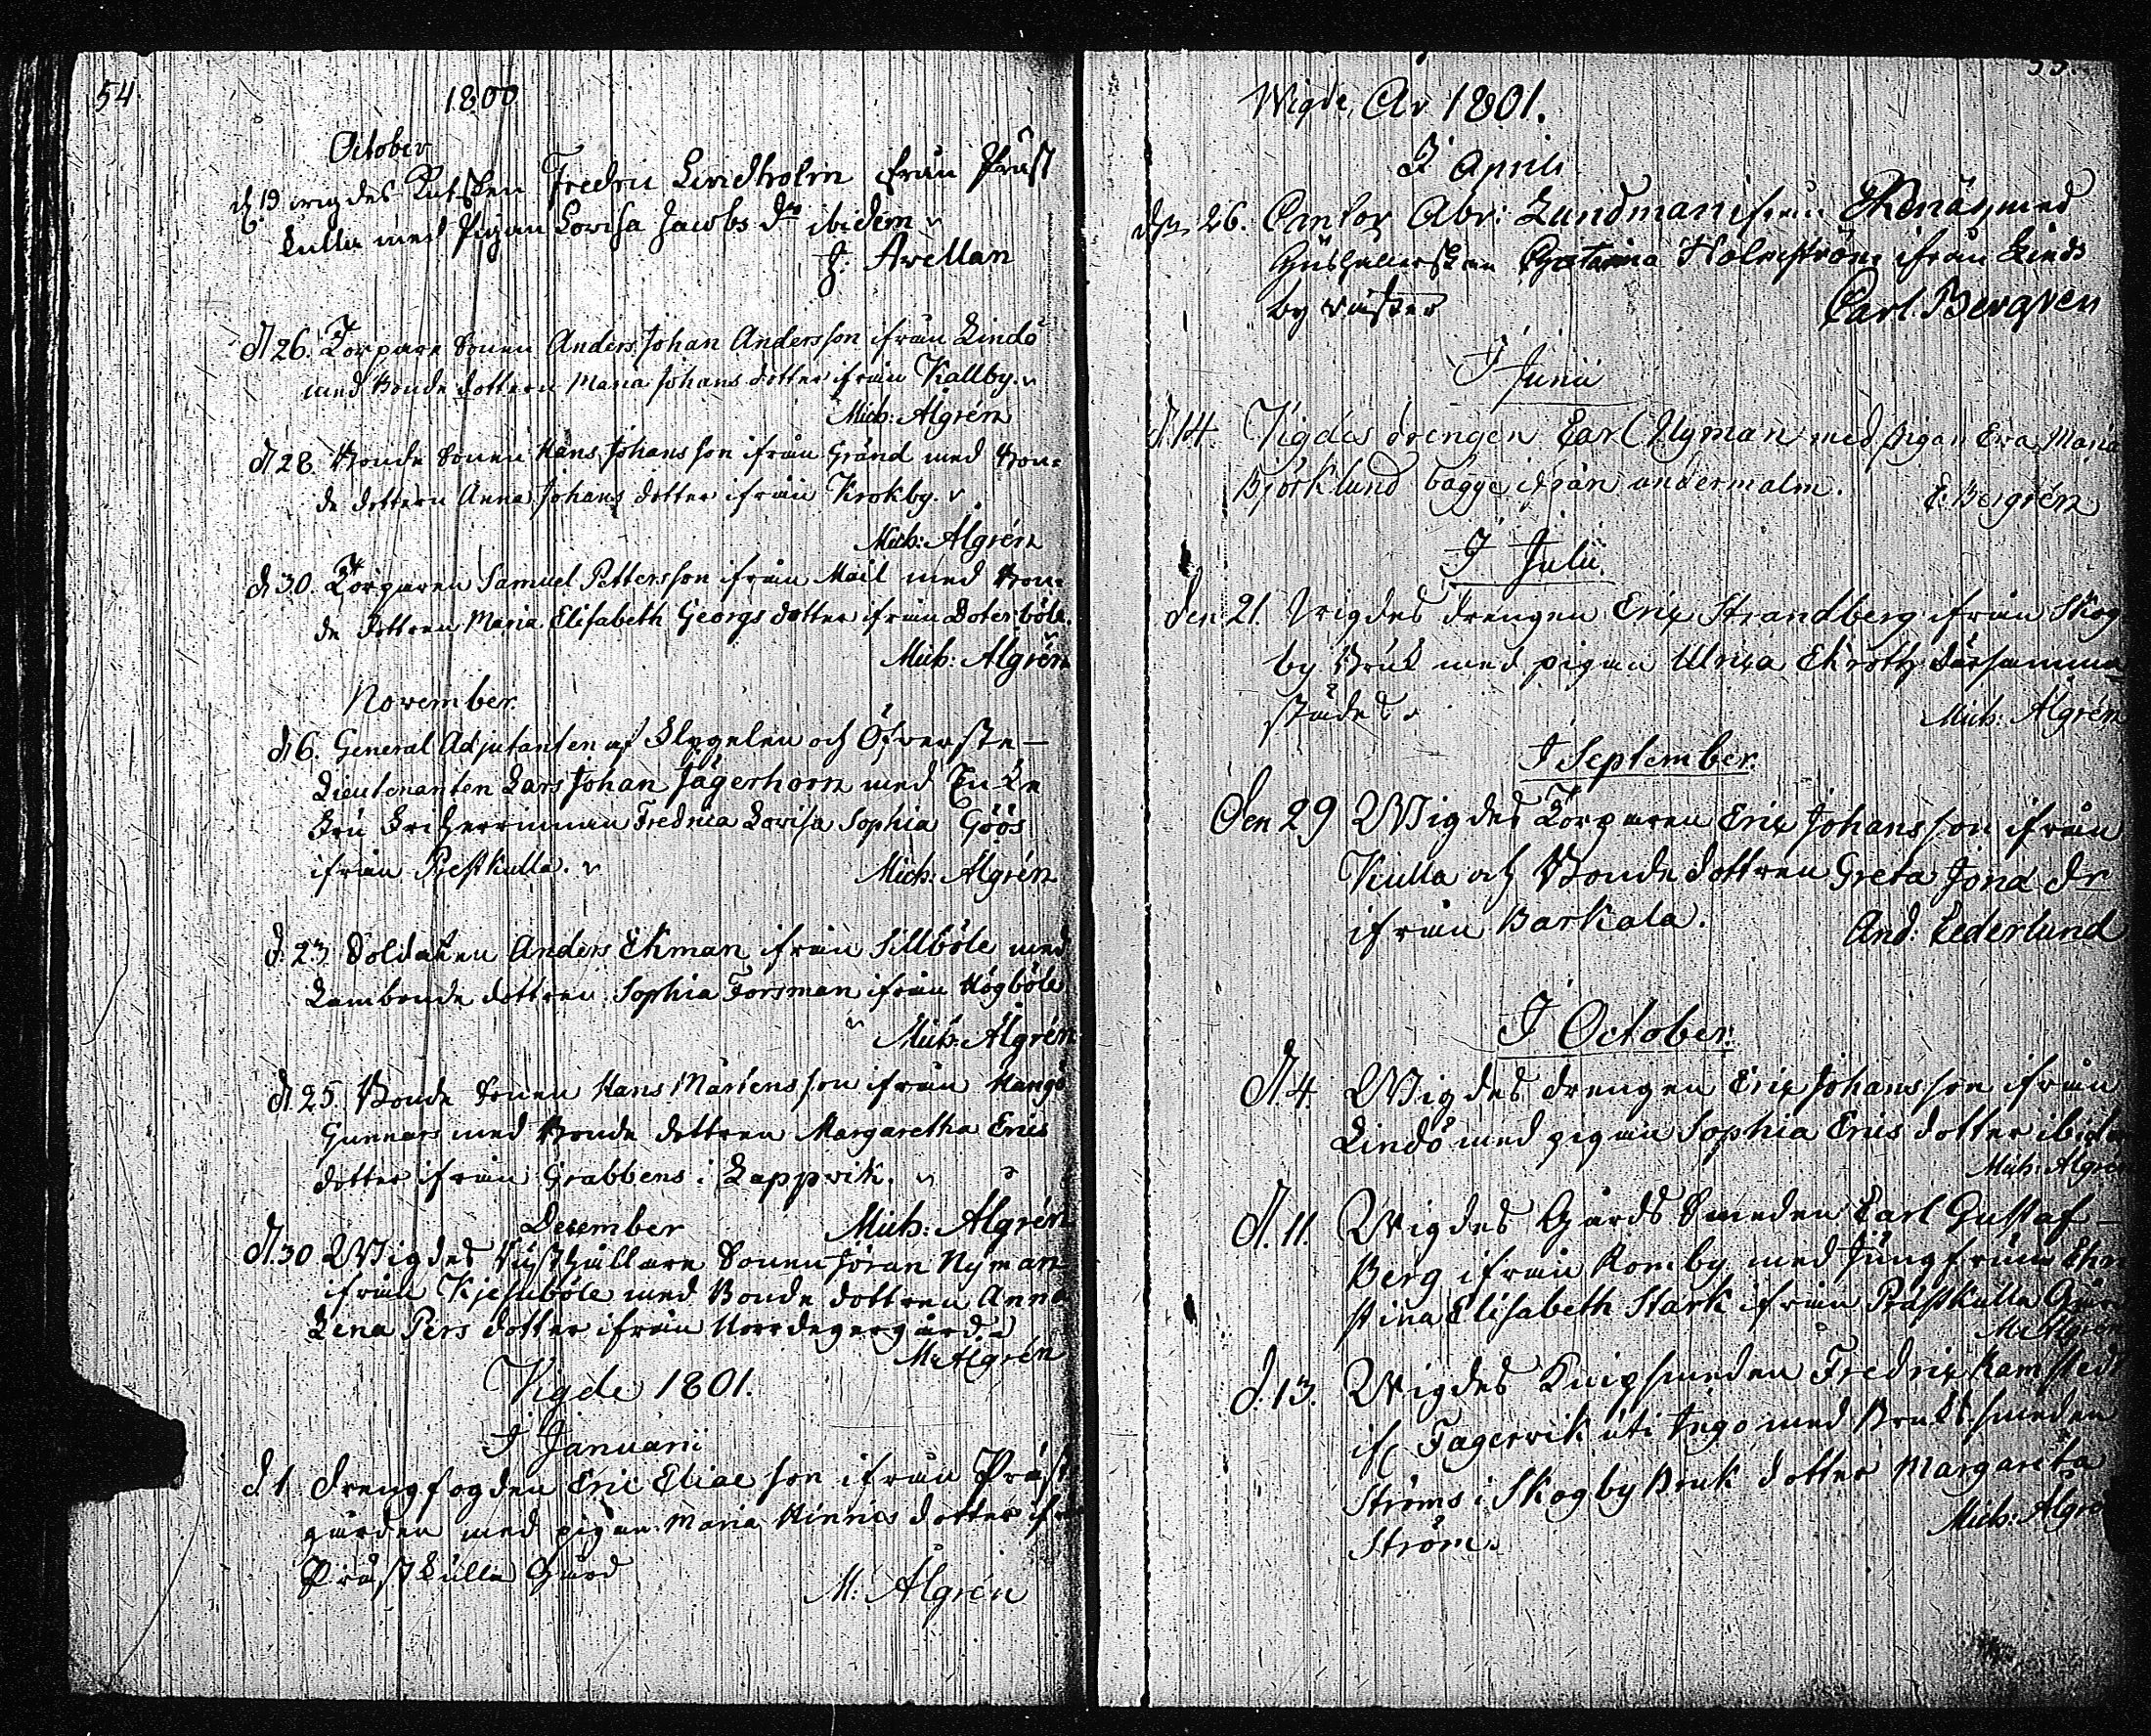 54.
1800
October
d. 19 wigdes Kusken Fredric Lindholm från Präst
kulla med Pigan Lovisa Jacobs dr ibidem
J. Avellan
d. 26. Torpare Sonen Anders Johan Andersson ifrån Lindö
med Bonde dottern Maria Johans dotter ifrån Kallby.
Mich: Algrén
d. 28. Bonde Sonen Hans Johansson ifrån Gränd med Bon-
de dottern Anna Johans dotter ifrån Krokby.
Mich: Algrén
d. 30. Torparen Samuel Pettersson ifrån Mail med Bon-
de dottren Maria Elisabeth Georgs dotter ifrån Doterböle.
Mich: Algrén
November.
d. 6. General Adjutanten af Flygelen och Öfverste-
Lieutenanten Lars Johan Jägerhorn med Enke
Fru Friherrinnan Fredrica Lovisa Sophia Göös
ifrån Prestkulla.
Mich: Algrén
d. 23. Soldaten Anders Ekman ifrån Sillböle med
Landbonde dottren Sophia Forsman ifrån Högböle
Mich: Algrén
d. 25. Bonde Sonen Hans Mårtensson ifrån Hangö
Gunnars med Bonde dottren Margaretha Erics
dotter ifrån Grabbens i Lappvik.
Mich: Algrén
December
d. 30 Wigdes Rusthållare Sonen Jöran Nyman
ifrån Kjesuböle med Bonde dottren Anna
Lena Pers dotter ifrån Norrdegergård
M: Algrén
Vigde 1801.
I Januarii
d. 1 Drengfogden Eric Eliae son ifrån Präst
gården med pigan Maria Hinrics dotter ifr
Prästkulla Gård
M: Algrén
55.
Wigde År 1801.
I Aprill
den 26. Cantor Abr: Lundman ifrån Ekenäs med
Hushållerskan Catarina Holmström ifrån Linds
by väster
Carl Bergren
I Junii
d. 14. Vigdes drengen Carl Nyman med pigan Eva Maria
Björklund bägge ifrån undermalm.
C. Bergrén
I Julii.
den 21. Wigdes drengen Eric Strandberg ifrån Skog
by Bruk med pigan Ulrica Ekroth därsamma-
städes.
Mich: Algrén
I September.
Den 29 Wigdes Torparen Eric Johansson ifrån
Kulla och Bonde dottren Greta Jona dr
ifrån Barkala.
And: Cederlund
I October.
d. 4. Wigdes drengen Eric Johansson ifrån
Lindö med pigan Sophia Erics dotter ibidem
Mich: Algrén
d. 11. Wigdes Gårds Smeden Carl Gustaf
Berg ifrån Romby med Jungfrun Chri
stina Elisabeth Stark ifrån Prästkulla Gård
M: Algrén
d. 13. Wigdes Knipsmeden Fredric Ramstedt
ifr Fagervik uti Ingo med Bruks smeden
Ströms i Skogby Bruk dotter Margareta
Ström.
Mich: Algré